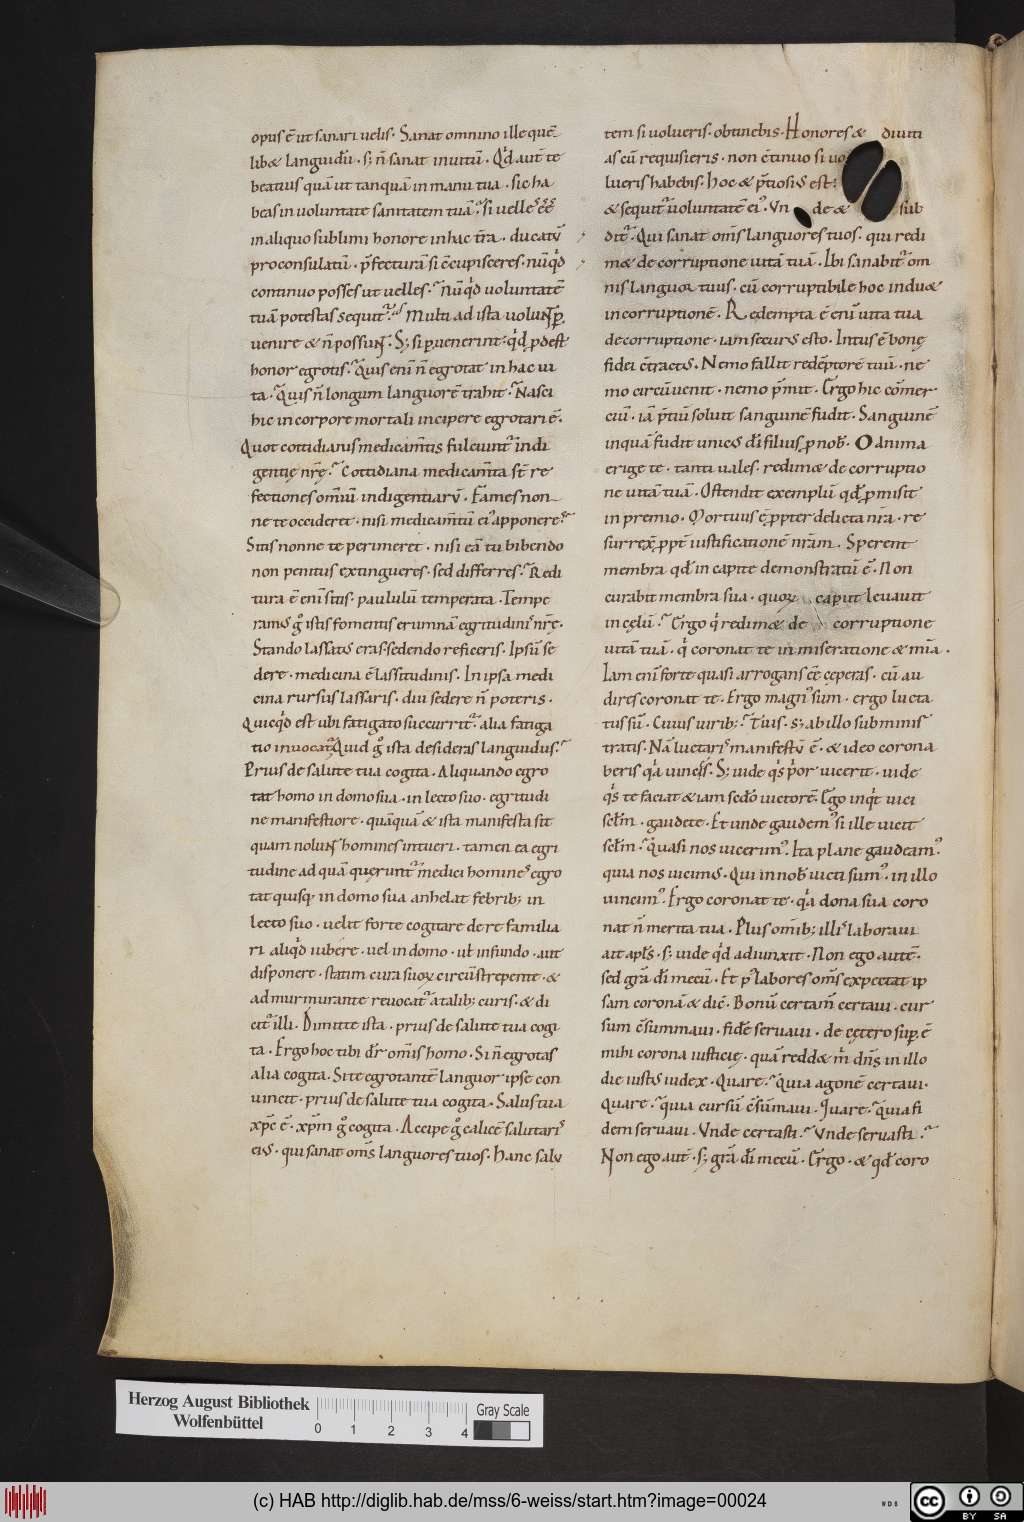 opus ē ut sanari uelis. Sanat omnino ille quē
libæ languidū. s; n̄ sanat inuitū. Qd̓ aut̄ te
beatius quā ut tanquā in manu tua. sic ha
beas in uoluntate sanitatem tuā. Si uelles ēē
in aliquo sublimi honore in hac tr̄a. ducatū
proconsulatū. p̄fecturā si c̄cupisceres. nūqd̓
continuo posses ut uelles. Nūqd̓ uoluntatē
tuā potestas sequit᷑. Multi ad ista uolunt ꝑ
uenire & n̄ possunt. S; si ꝑuenerint. qd̓ ꝓdest
honor egrotis. Quis eni n̄ egrotat in hac ui
ta. Quis n̄ longum languorē trahit. Nasci
hic in corpore mortali incipere egrotari ē.
Quot cottidianis medicam̄tis fulciunt᷑ indi
gentię nr̄ę. Cottidiana medicam̄ta st̄ re
fectiones om̄iū indigentiarū. Fames non
ne te occideret. nisi medicam̄tū ei᷒ apponeres
Sitis nonne te perimeret. nisi eā tu bibendo
non penitus extingueres. sed differres. Redi
tura ē eni sitis. paululū temperata. Tempe
ram᷒ g̊ istis fomentis erumnā egritudinis nr̄ę.
Stando lassat᷒ eras. sedendo reficeris. Ipsū se
dere. medicina ē lassitudinis. In ipsa medi
cina rursus lassaris. diu sedere n̄ poteris.
Quicqd̓ est ubi fatigato succurrit᷑. alia fatiga
tio inuocat᷑. Quid g̊ ista desideras languidus.
Prius de salute tua cogita. Aliquando egro
tat homo in domo sua. in lecto suo. egritudi
ne manifestiore. quāquā & ista manifesta sit
quam nolunt homines intueri. tamen ea egri
tudine ad quā querunt᷑ medici homines egro
tat quisq; in domo sua anhelat febrib; in
lecto suo. uelit forte cogitare de re familia
ri aliqd̓ iubere. uel in domo. ul̄ in fundo. aut
disponere. statim cura suoꝝ circūstrepente. &
admurmurante reuocat᷑ a talib; curis. & di
cit᷑ illi. Dimitte ista. prius de salute tua cogi
ta. Ergo hoc tibi dr̄ om̄is homo. Si n̄ egrotas
alia cogita. Si te egrotantē languor ipse con
uincit. prius de salute tua cogita. Salus tua
xp̄c ē. xp̄m g̊ cogita. Accipe g̊ calicē salutaris
ei᷒. qui sanat om̄s languores tuos. Hanc salu
tem si uolueris. obtinebis. Honores & diuiti
as cū requisieris. non c̄tinuo si uo
lueris habebis. Hoc & p̄tiosi᷒ est;
& sequit᷑ uoluntatē ei᷒. Vn de & sub
dit᷑. Qui sanat om̄s languores tuos. qui redi
mæ de corruptione uitā tuā. Ibi sanabit᷑ om
nis languor tuus. cū corruptibile hoc induæ
incorruptionē. Redempta ē eni uita tua
de corruptione. iam secur᷒ esto. Intus ē bonę
fidei c̄tract᷒. Nemo fallit redēptorē tuū. ne
mo circūuenit. nemo p̄mit. Ergo hic cōmer
ciū. iā p̄tiū soluit sanguinē fudit. Sanguinē
inquā fudit unic᷒ dī filius ꝓ nob̄. O anima
erige te. tanti uales. redimæ de corruptio
ne uitā tuā. Ostendit exemplū qd̓ ꝓmisit
in premio. Mortuus ē ꝓpter delicta nr̄a. re
surrex̄ ꝓpt̄ iustificationē nr̄am. Sperent
membra qd̓ in capite demonstratū ē. Non
curabit membra sua. quoꝝ caput leuauit
in cęlū. Ergo q̓ redimæ de corruptione
uitā tuā. q̓ coronat te in miseratione & mīa.
Iam eni forte quasi arrogans ēē cęperas. cū au
dires coronat te. Ergo magn᷒ sum. ergo lucta
tus sū. Cuius uirib;. Tuis. s; ab illo subminis
tratis. Nā luctaris manifestū ē. & ideo corona
beris qa uincis. S; uide qs p̓or uicerit. uide
qs te faciat & iam sedo uictorē. Ego inqt uici
sclm̄. gaudete. Et unde gaudem᷒ si ille uicit
sclm̄. Quasi nos uicerim᷒. Ita plane gaudeam᷒
quia nos uicim᷒. Qui in nob̄ uicti sum᷒. in illo
uincim᷒. Ergo coronat te. qa dona sua coro
nat n̄ merita tua. Plus omīb; illis laboraui
ait apl̄s. s; uide qd̓ adiunxit. Non ego autē.
sed gr̄a dī mecū. Et p᷒ labores om̄s expectat ip
sam coronā & dic̄. Bonū certam̄ certaui. cur
sum c̄summaui. fidē seruaui. de cętero suꝑ ē
mihi corona iusticię. quā reddæ m̓ dn̄s in illo
die iust᷒ iudex. Quare. Quia agonē certaui.
Quare. Quia cursū c̄sūmaui. Quare. Quia fi
dem seruaui. Vnde certasti. Vnde seruasti.
Non ego aut̄. s; gr̄a dī mecū. Ergo. & qd̓ coro
Herzog August Bibliothek
Wolfenbüttel
0 1 2 3 4
Gray Scale
(c) HAB http://diglib.hab.de/mss/6-weiss/start.htm?image=00024
WDB
cc BY SA